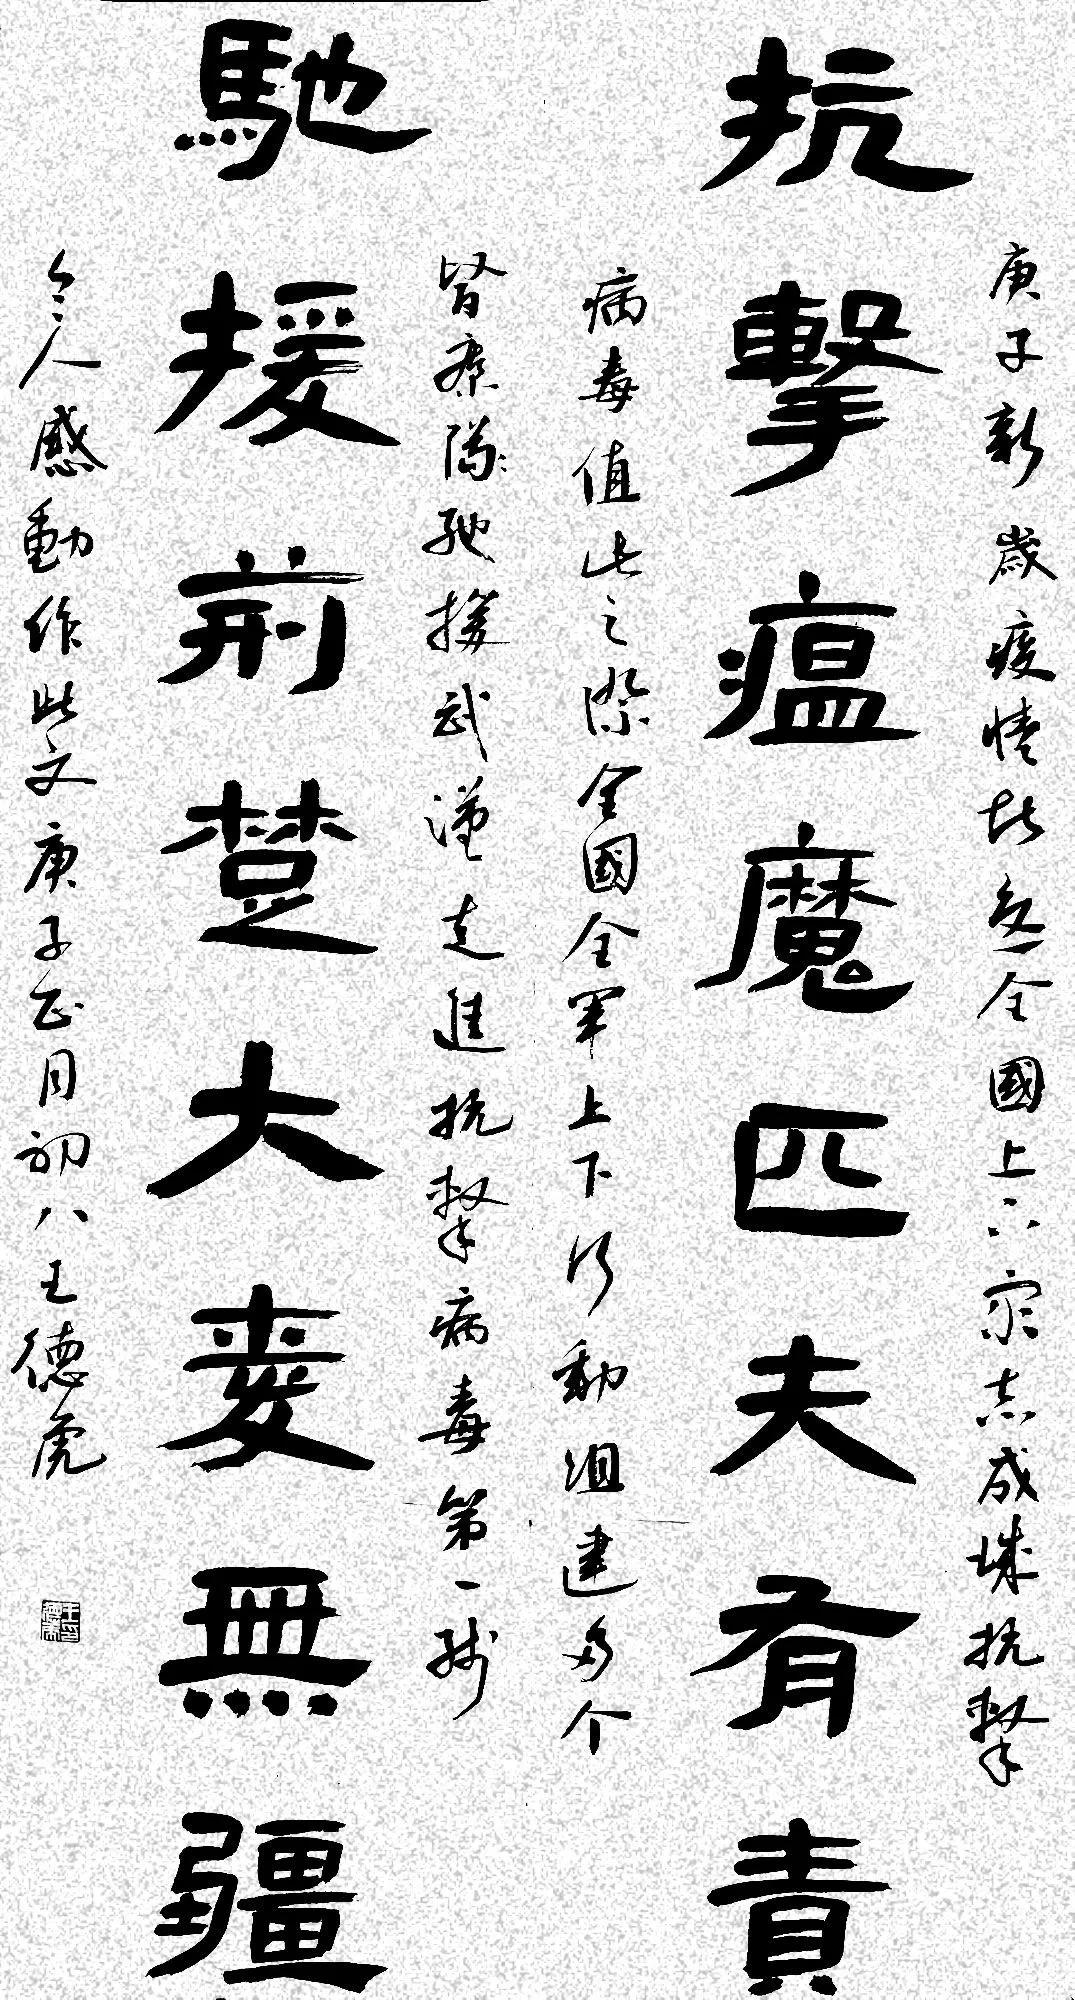 庚子新歲疫情告急全國上下眾志成城抗擊
抗擊瘟魔匹夫有責
病毒值此之際全國全軍上下行動組建多个
醫療隊馳援武漢走進抗擊病毒第一綫
馳援荊楚大愛無疆
令人感動作此文庚子正月初八王德虎